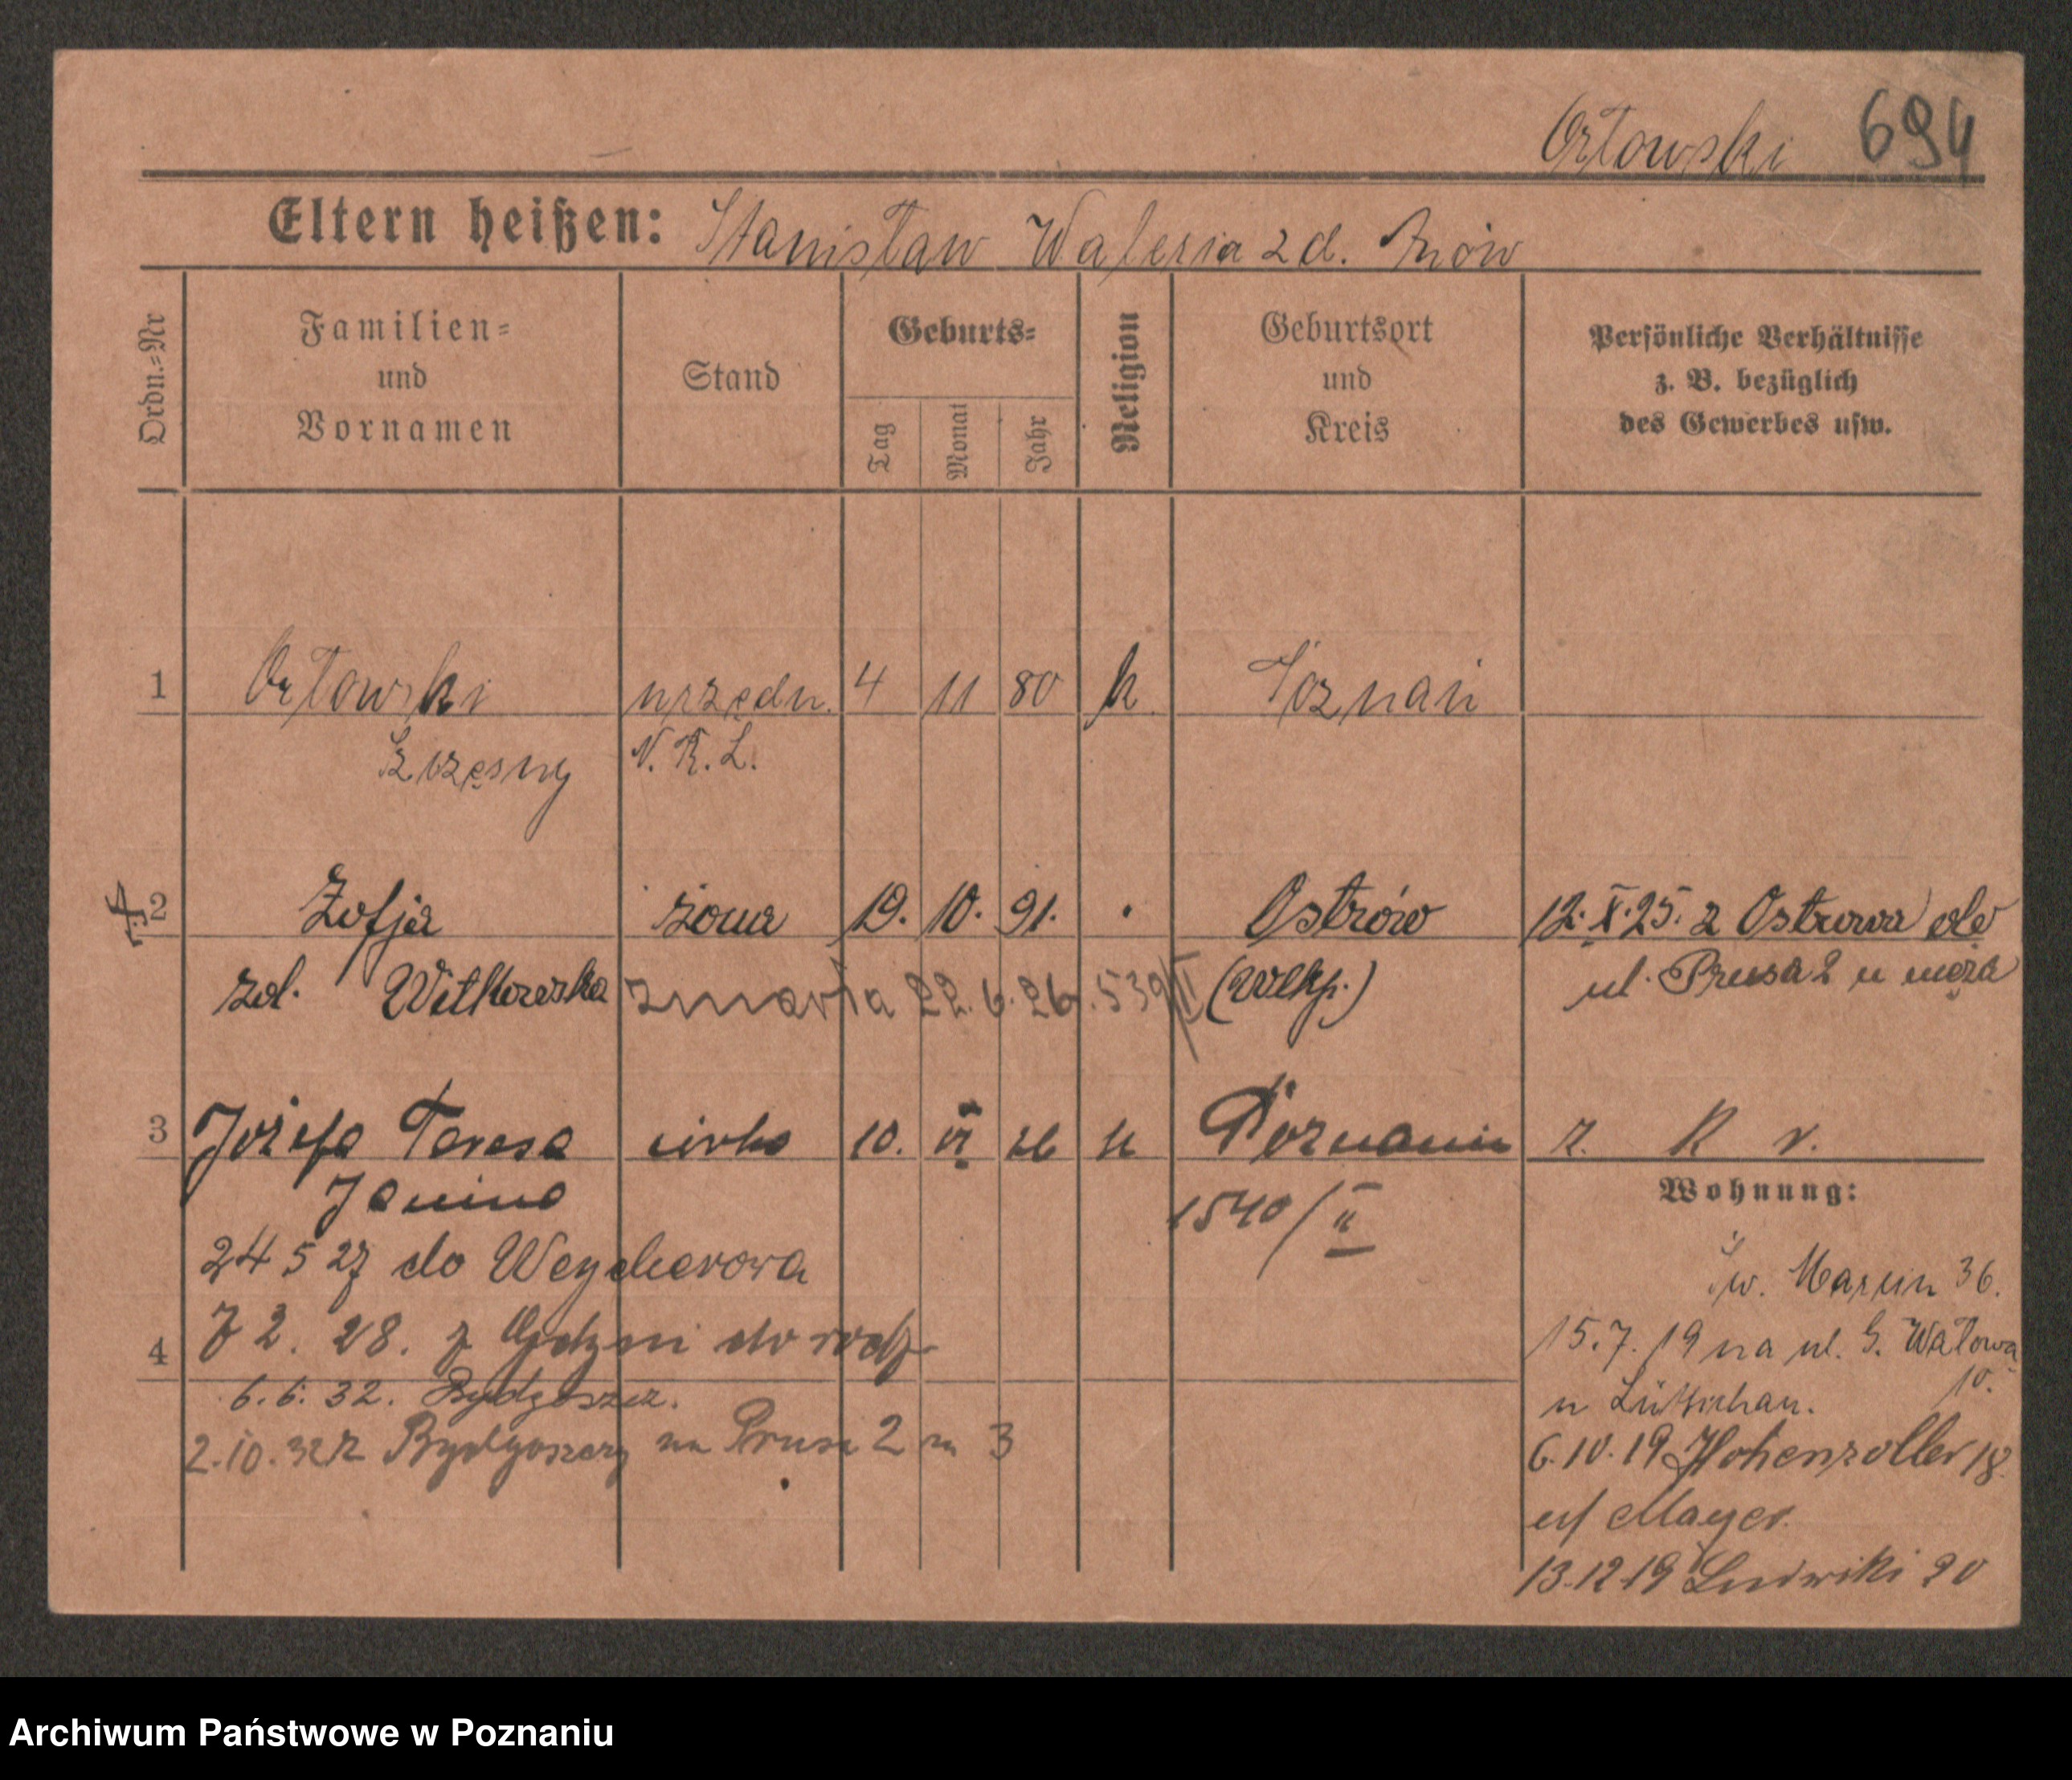 Orłowski 694
Eltern heißen: Stanisław Waleria z d.
Ordn.=Nr
Familien=
und
Vornamen
Stand
Geburts=
Tag
Monat
Jahr
Religion
Geburtsort
und
Kreis
Persönliche Verhältnisse
z. B. bezüglich
des Gewerbes usw.
1 Orłowski urzędn. 4 11 80 k Poznań
Szczęsny N. R. L.
2 Zofja żona 19. 10. 91. Ostrów 12.X.25. z Ostrowa
zd. Witkowska zmarła 22. 6. 26. 539/II (Wlkp.) ul. Prusa 2 u męża
3 Józefa Teresa córka 10. VI 26 k Poznań z. K r.
Janina 1540/II
Wohnung:
24 5 27 do Weyherowa
Św. Marcin 36.
7 2. 28. z Gdyni do rodz.
15.7.19 na ul. G. Wałowa
4
10.
6.6.32. Bydgoszcz.
u Lüttichau.
2.10.32 z Bydgoszczy na Prusa 2 m 3
6.10.19 Hohenzoller 18
Mayer
13.12.19 Ludwiki 20
Archiwum Państwowe w Poznaniu